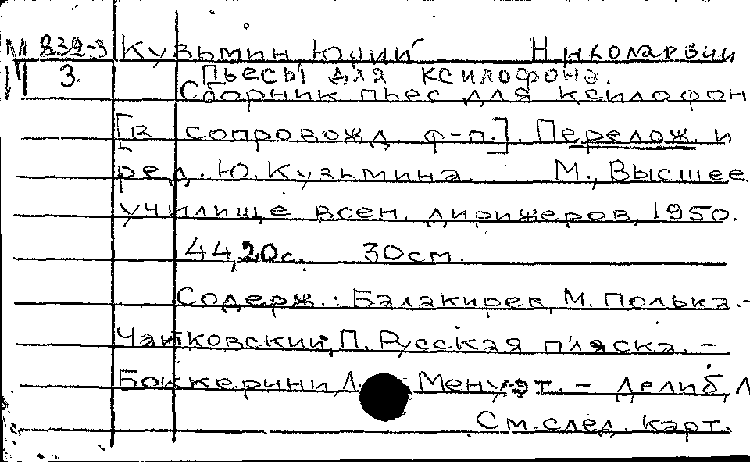 М 839-3 Кузьмин, Юрий Николаевич
3. Пьесы для ксилофона.
Сборник пьес для ксилофон
[в сопровожд ф-п.]. Перелож. и
ред. Ю. Кузьмина. М., Высшее
училище воен. дирижеров, 1950.
44,20с. 30см.
Содерж.: Балакирев, М. Полька. -
Чайковский, П. Русская пляска. -
Боккерини, Л. Менуэт. - Делиб, Л
См. след. карт.